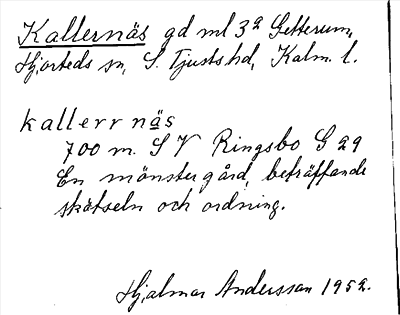 Kallernäs gd ml 3ª Getterum,
Hjorteds sn, S. Tjusts hd, Kalm. l.
kallerrnäs
700 m. SV Ringsbo G 29
En mönstergård, beträffande
skötseln och ordning.
Hjalmar Andersson 1952.